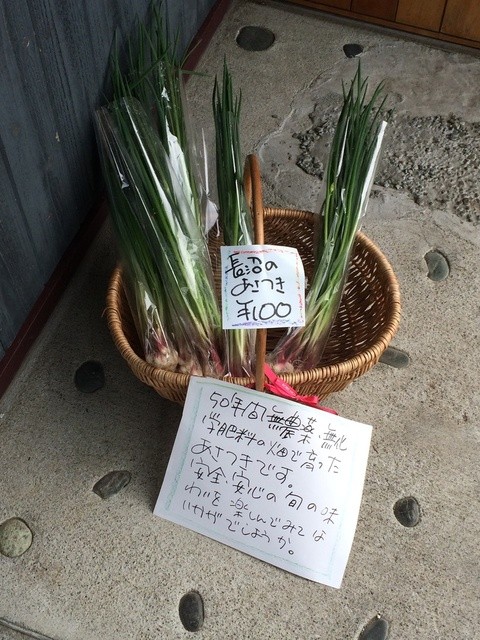 長沼の
あさつき
¥100
50年間無農薬、無化
学肥料の畑で育った
あさつきです。
安全、安心の旬の味
わいを楽しんでみては
いかがでしょうか。